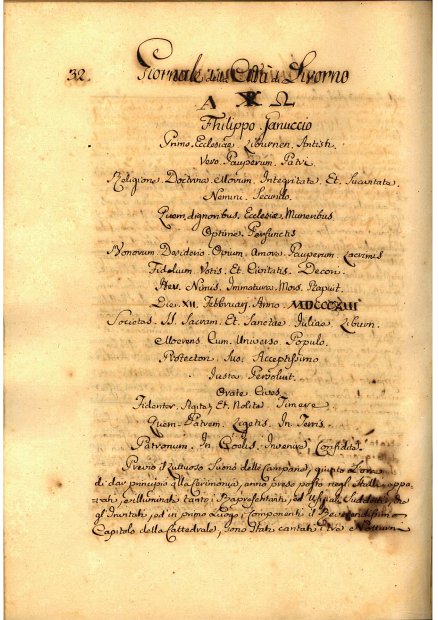 32. Giornale della Città di Livorno
Α ☧ Ω
Philippo Ganuccio
Primo. Ecclesiae. Liburnen. Antisti.
Vero. Pauperum. Patri
Religione. Doctrina. Morum. Integritate. Et. Iucunitata.
Nemini. Secundo.
Quem. dignoribus. Ecclesiae. Muneribus
Optime. Perfunctis
Bonorum. Desiderio. Ovium. Amore. Pauperum. Lacrimis
Fidelium. Votis. Et. Civitatis. Decori.
Heu. Nimis. Immatura. Mors. Rapuit.
Die. XII. Februarj. Anno MDCCCXIII
Societas. SS. Sacram. Et. Sanctae. Iuliae. Liburn.
Moerens. Cum. Universo. Populo.
Protectori. Suo. Acceptissimo
Iusta Persoluit.
Orate Cives
Fidenter. Agite. Et. Nolite. Timere
Quem. Patrem. Legetis. In. Terris.
Patronum. In. Coelis. Invenire. Confidite.
Previo il luttuoso Suono delle Campane, giunta l'ora
di dar principio alla Cerimonia, anno preso posto negli Stalli appa-
rati, e illuminati tanto i Rapresentanti, ed Uffiziali Suddetti, che
gl'Invitati, ed in primo Luogo i Componenti il Reverendissimo
Capitolo della Cattedrale, sono Stati cantati i Tre Notturni